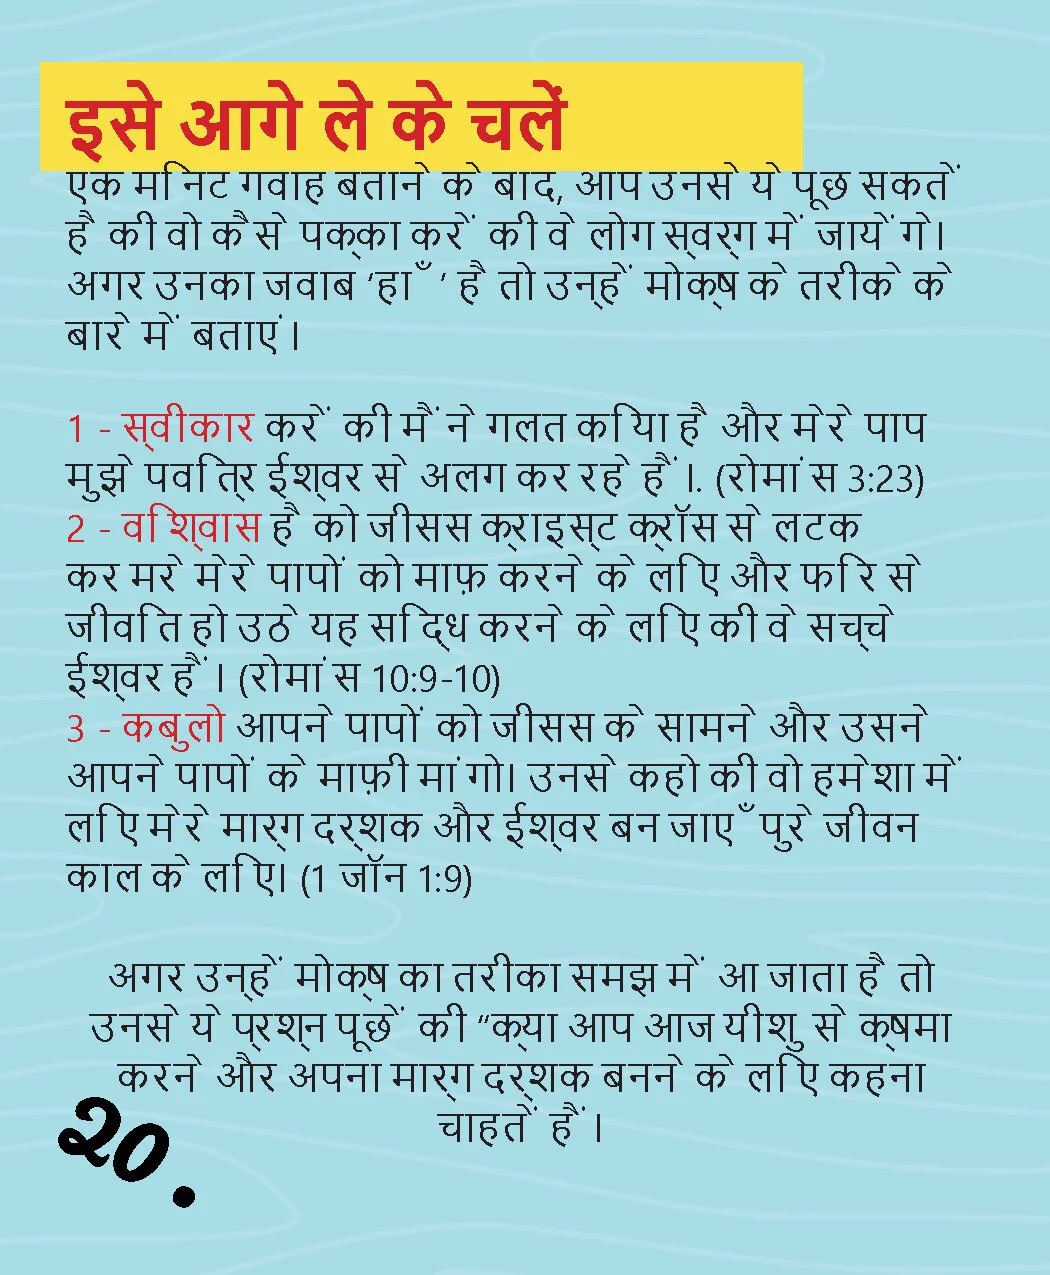 इसे आगे ले के चलें
एक मिनट गवाह बताने के बाद, आप उनसे ये पूछ सकतें
है की वो कैसे पक्का करें की वे लोग स्वर्ग में जायेंगे।
अगर उनका जवाब ‘हाँ ’ है तो उन्हें मोक्ष के तरीके के
बारे में बताएं।
1 - स्वीकार करें की मैंने गलत किया है और मेरे पाप
मुझे पवित्र ईश्वर से अलग कर रहे हैं।. (रोमांस 3:23)
2 - विश्वास है को जीसस क्राइस्ट क्रॉस से लटक
कर मरे मेरे पापों को माफ़ करने के लिए और फिर से
जीवित हो उठे यह सिद्ध करने के लिए की वे सच्चे
ईश्वर हैं। (रोमांस 10:9-10)
3 - कबुलो आपने पापों को जीसस के सामने और उसने
आपने पापों के माफ़ी मांगो। उनसे कहो की वो हमेशा में
लिए मेरे मार्ग दर्शक और ईश्वर बन जाएँ पुरे जीवन
काल के लिए। (1 जॉन 1:9)
अगर उन्हें मोक्ष का तरीका समझ में आ जाता है तो
उनसे ये प्रश्न पूछें की “क्या आप आज यीशु से क्षमा
करने और अपना मार्ग दर्शक बनने के लिए कहना
चाहतें हैं।
२०.